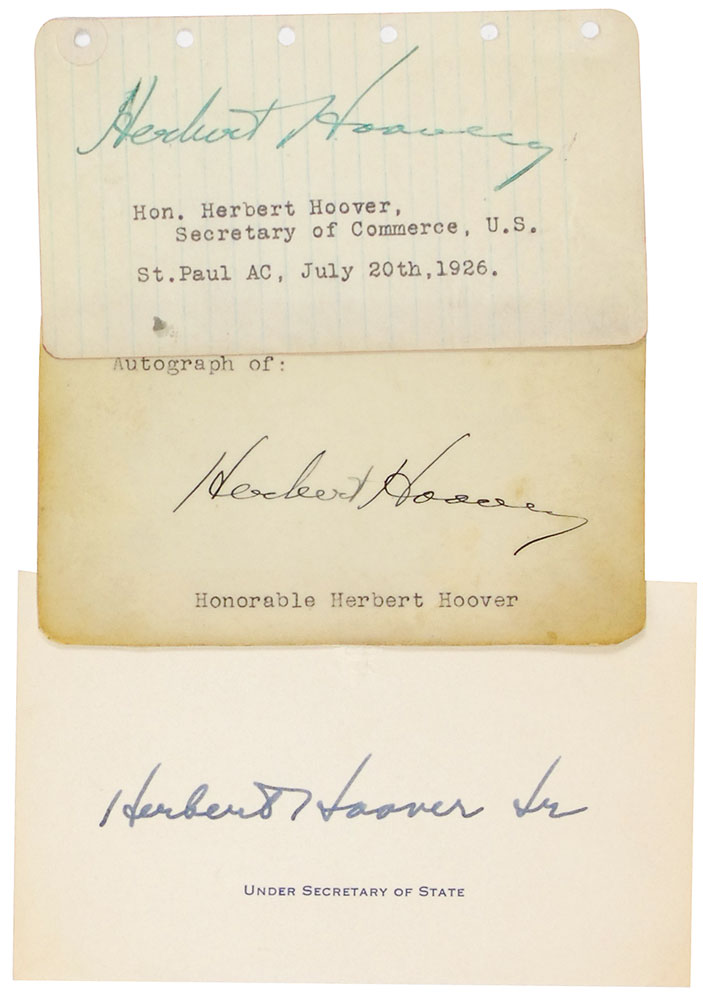 Herbert Hoover
Hon. Herbert Hoover,
Secretary of Commerce, U.S.
St.Paul AC, July 20th,1926.
Autograph of:
Herbert Hoover
Honorable Herbert Hoover
Herbert Hoover Jr
UNDER SECRETARY OF STATE